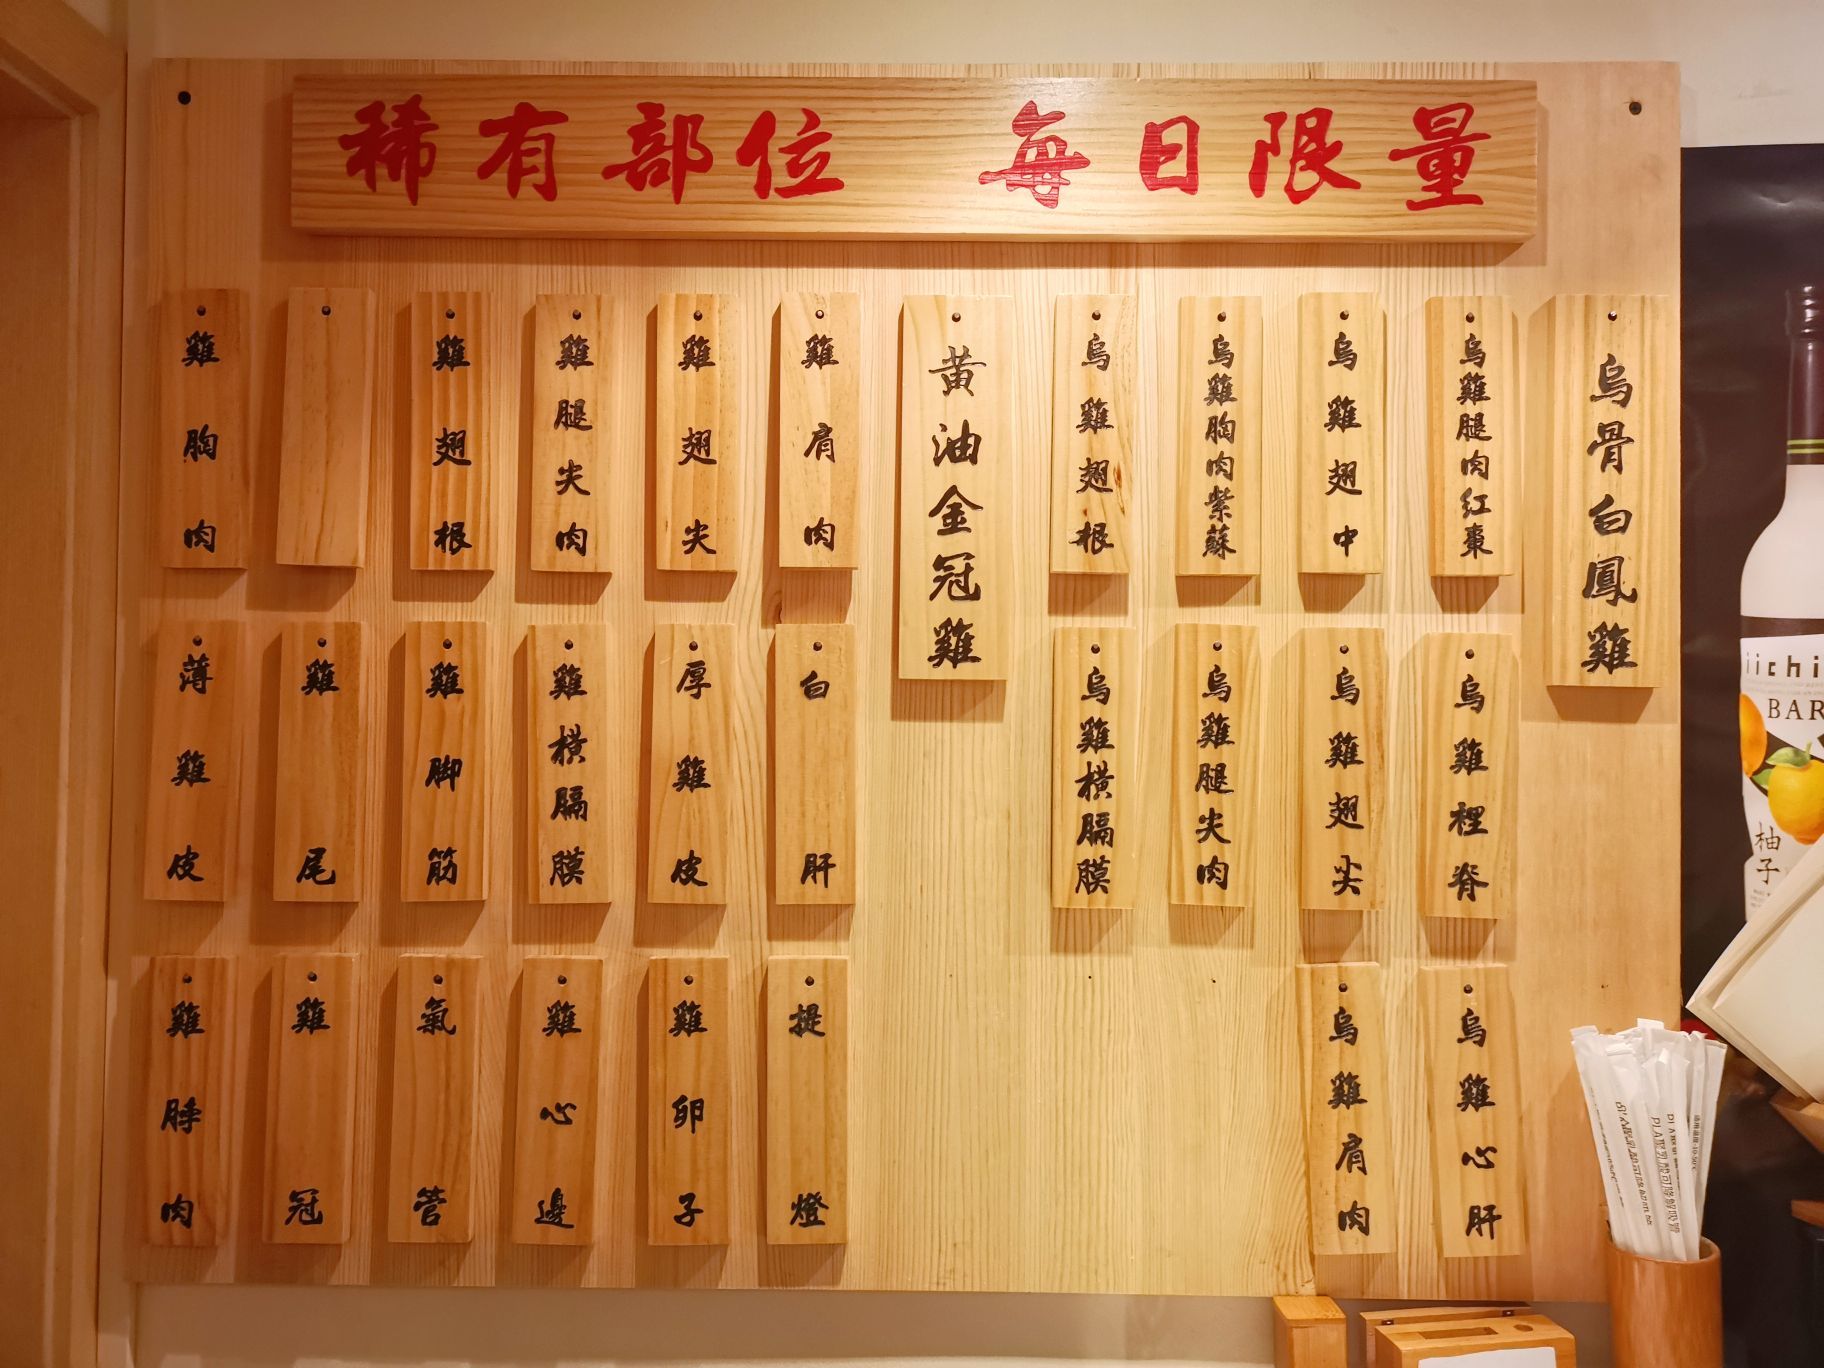 稀有部位 每日限量
烏骨白鳳雞
烏雞腿肉紅棗
烏雞翅中
烏雞胸肉紫蘇
烏雞翅根
烏雞裡脊
烏雞翅尖
烏雞腿尖肉
烏雞橫膈膜
烏雞心肝
烏雞肩肉
黄油金冠雞
雞肩肉
雞翅尖
雞腿尖肉
雞翅根
雞胸肉
白肝
厚雞皮
雞橫膈膜
雞脚筋
雞尾
薄雞皮
提燈
雞卵子
雞心邊
氣管
雞冠
雞脖肉
iichi
BAR
柚子